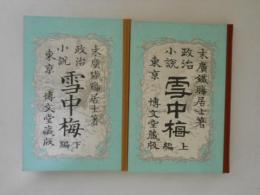 末廣鐵膓居士著
政治
小說
雪中梅
上
編
東京
博文堂藏版
末廣鐵膓居士著
政治
小說
雪中梅
下
編
東京
博文堂藏版